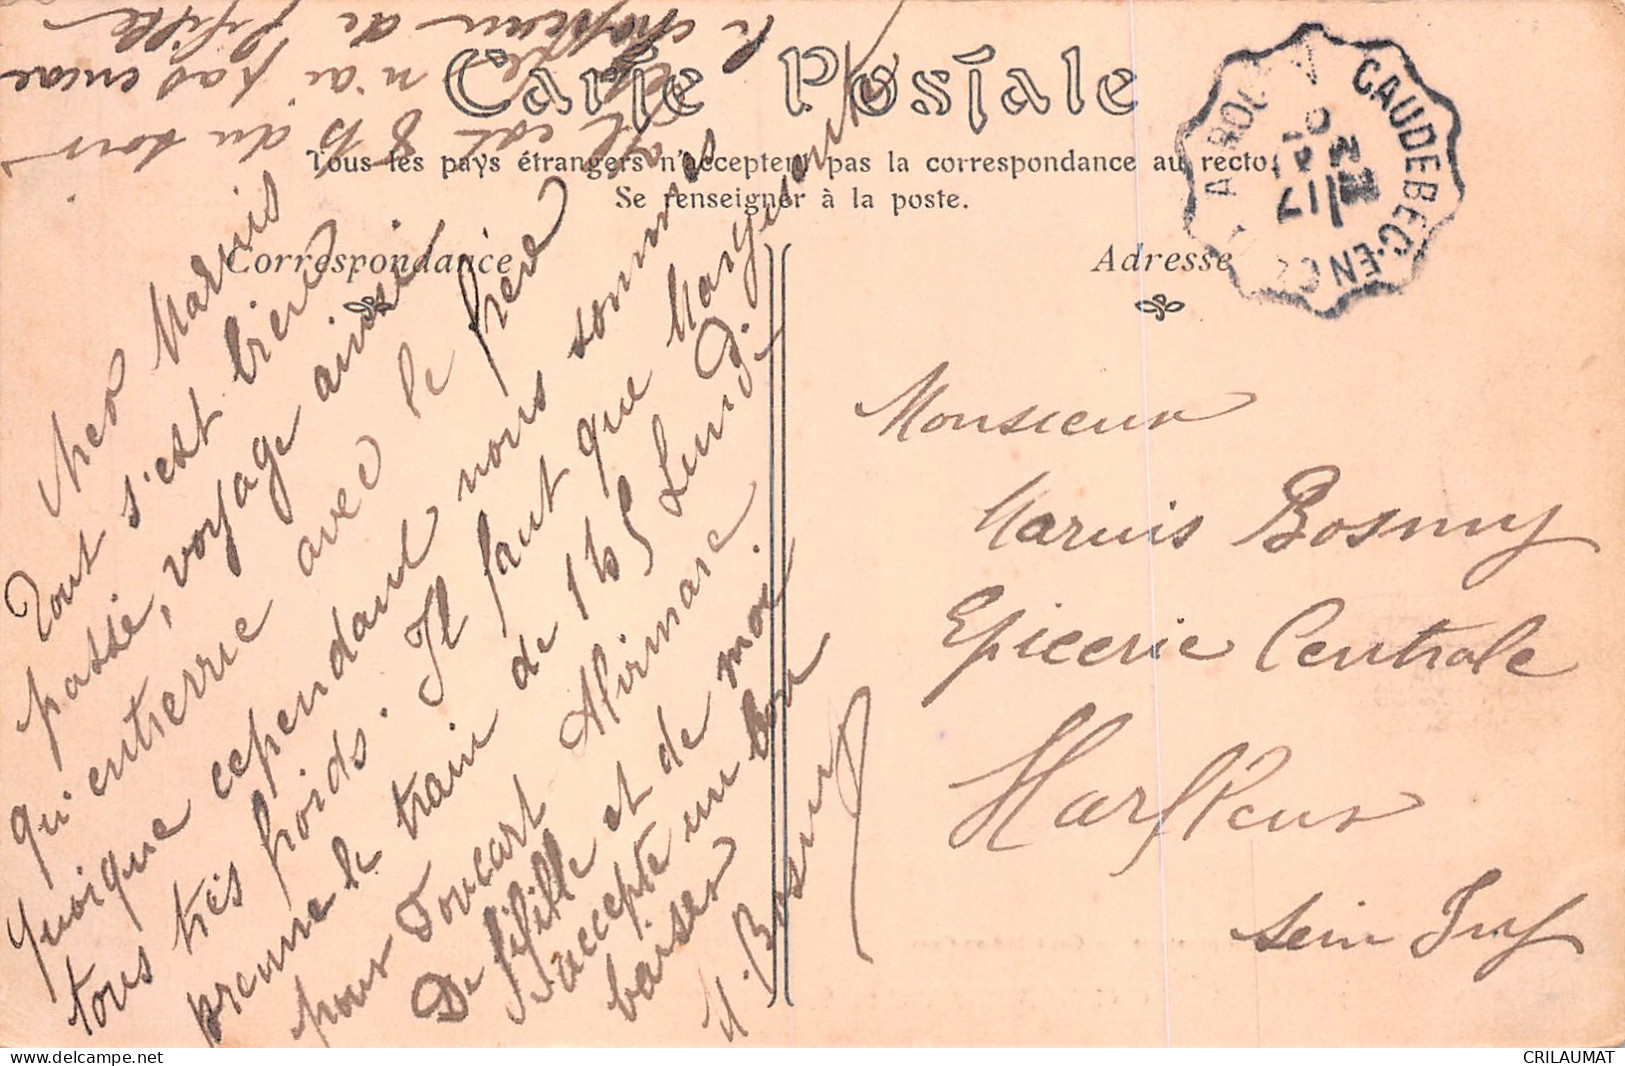 Carte Postale
Tous les pays étrangers n'acceptent pas la correspondance au recto.
Se renseigner à la poste.
Correspondance
Adresse
CAUDEBEC-EN-C
A BOL
17
Cher Maruis
Tout s'est bien
passé, voyage ainsi
qu'enterrie avec le frère
quoique cependant nous sommes
tous très froids. Il faut que Marguerite
prenne le train de 1h5 Lundi
pour Foucart Alvimare
De fifille et de moi
accepte un bon
baiser
M. Bosmy
Il est 8h du soir
je n'ai pas encore
le chapeau de fifille
Monsieur
Maruis Bosmy
Epicerie Centrale
Harfleur
Sein Inf
CRILAUMAT